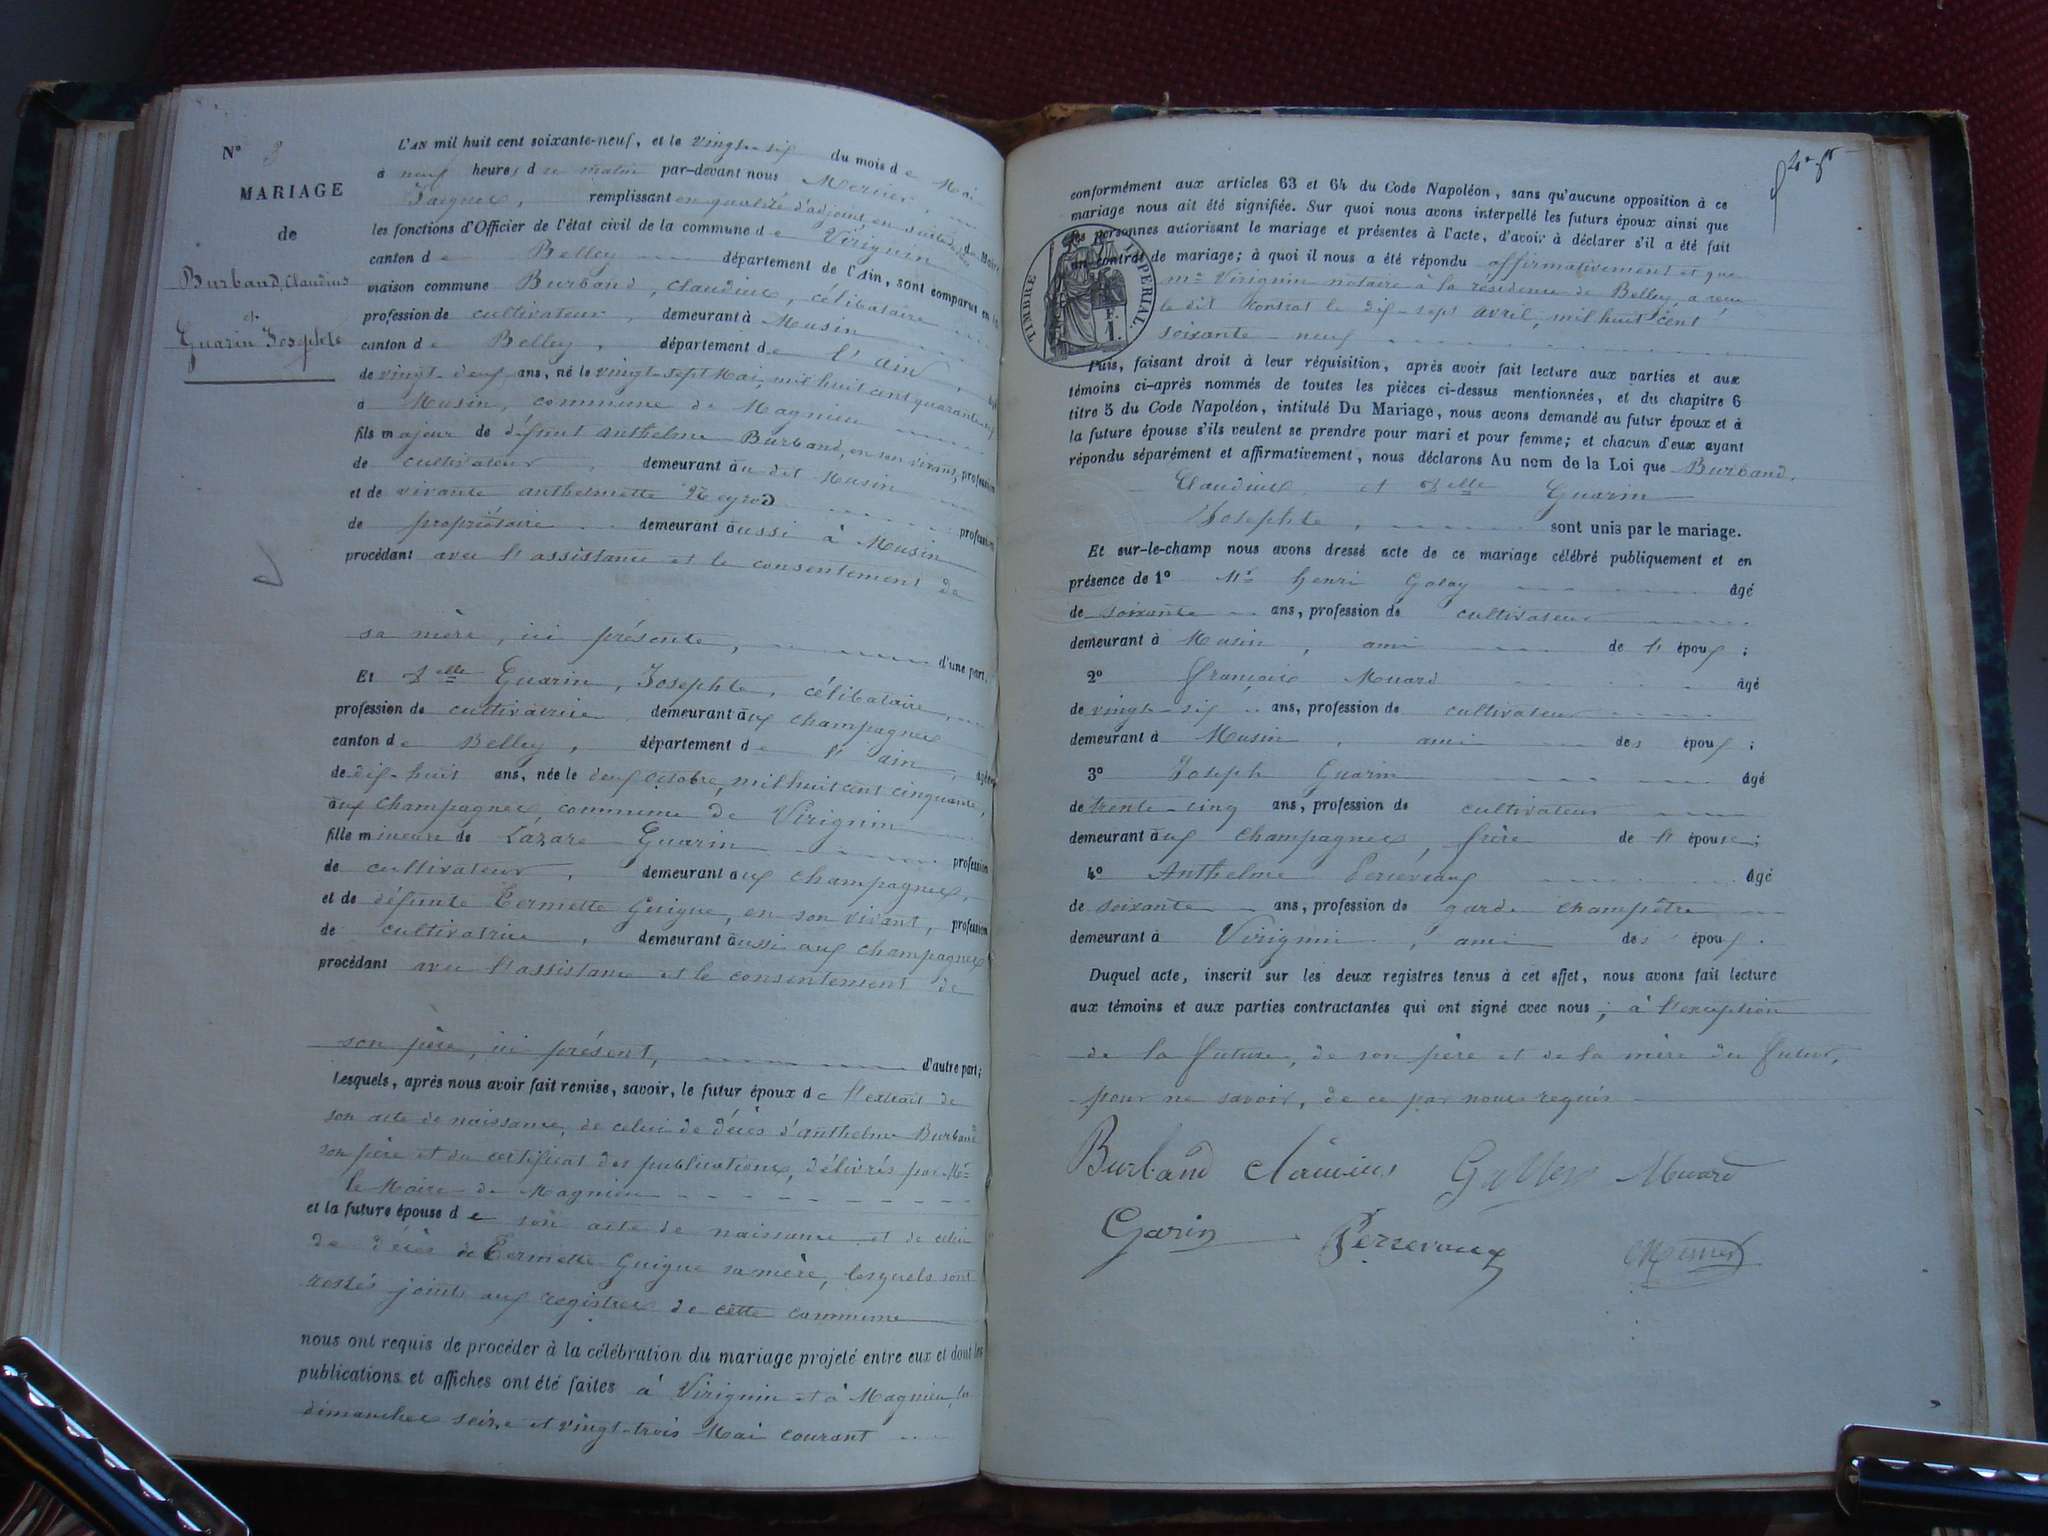 N° 3
MARIAGE
de
Burband, Claudius
et
Guarin Josephte
L'AN mil huit cent soixante-neuf, et le vingt-six du mois de Mai
à neuf heures du matin par-devant nous Mercier,
Jacques, remplissant en qualité d'adjoint, en suite
les fonctions d'Officier de l'état civil de la commune de Virignin
canton de Belley département de l'Ain, sont comparus en la
maison commune Burband, Claudius, célibataire
profession de cultivateur, demeurant à Musin
canton de Belley, département de l'ain,
de vingt-deux ans, né le vingt-sept Mai, mil huit cent quarante-six
à Musin, commune de Magnieu
fils majeur de défunt anthelme Burband, en son vivant, profession
de cultivateur, demeurant au dit Musin
et de vivante anthelmette Neyrod profession
de propriétaire demeurant aussi à Musin
procédant avec l'assistance et le consentement de
sa mère, ici présente, d'une part.
Et Delle Guarin, Josephte, célibataire,
profession de cultivatrice demeurant aux champagnes
canton de Belley, département de l'ain, âgée
de dix-huit ans, née le deux octobre, mil huit cent cinquante,
aux champagnes, commune de Virignin
fille mineure de Lazare Guarin profession
de cultivateur, demeurant aux champagnes,
et de défunte Termette Guigue, en son vivant, profession
de cultivatrice, demeurant aussi aux champagnes
procédant avec l'assistance et le consentement de
son père, ici présent, d'autre part;
Lesquels, après nous avoir fait remise, savoir, le futur époux de l'extrait de
son acte de naissance, de celui de décès d'anthelme Burband
son père et du certificat des publications, délivrés par Mr
le Maire de Magnieu
et la future épouse de son acte de naissance et de celui
de décès de Termette Guigue sa mère, lesquels sont
restés joints aux registres de cette commune
nous ont requis de procéder à la célébration du mariage projeté entre eux et dont les
publications et affiches ont été faites à Virignin et à Magnieu, les
dimanches seize et vingt-trois Mai courant
conformément aux articles 63 et 64 du Code Napoléon, sans qu'aucune opposition à ce
mariage nous ait été signifiée. Sur quoi nous avons interpellé les futurs époux ainsi que
les personnes autorisant le mariage et présentes à l'acte, d'avoir à déclarer s'il a été fait
un contrat de mariage; à quoi il nous a été répondu affirmativement et que
me Virignin notaire à la résidence de Belley, a reçu
le dit contrat le dix-sept avril, mil huit cent
soixante-neuf
TIMBRE IMPÉRIAL.
Puis, faisant droit à leur réquisition, après avoir fait lecture aux parties et aux
témoins ci-après nommés de toutes les pièces ci-dessus mentionnées, et du chapitre 6
titre 5 du Code Napoléon, intitulé Du Mariage, nous avons demandé au futur époux et à
la future épouse s'ils veulent se prendre pour mari et pour femme; et chacun d'eux ayant
répondu séparément et affirmativement, nous déclarons Au nom de la Loi que Burband,
Claudius, et Delle Guarin
Josephte, sont unis par le mariage.
Et sur-le-champ nous avons dressé acte de ce mariage célébré publiquement et en
présence de 1° Mr henri Golay âgé
de soixante ans, profession de cultivateur
demeurant à Musin, ami de l'époux;
2° françois Muard âgé
de vingt-six ans, profession de cultivateur
demeurant à Musin, ami des époux;
3° Joseph Guarin âgé
de trente-cinq ans, profession de cultivateur
demeurant aux champagnes, frère de l'épouse;
4° Anthelme Perrevaux âgé
de soixante ans, profession de garde champêtre
demeurant à Virignin, ami des époux.
Duquel acte, inscrit sur les deux registres tenus à cet effet, nous avons fait lecture
aux témoins et aux parties contractantes qui ont signé avec nous; à l'exception
de la future, de son père et de la mère du futur,
pour ne savoir, de ce par nous requis
Burband Claudius Muard
Garin Perrevaux